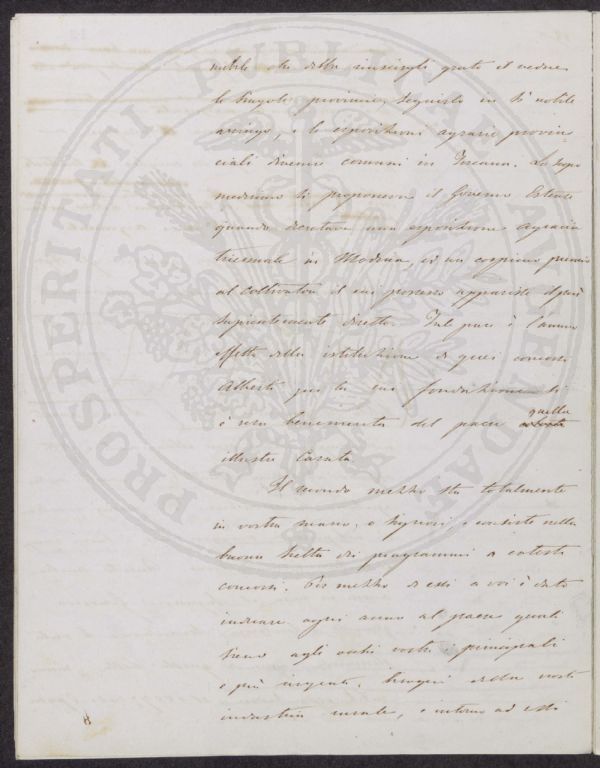 nobile che debbe riuscirgli grato il vedere
le singole provincie, seguirlo in sì nobile
aringo, e le esposizioni agrarie provin-
ciali divenire comuni in Toscana. Lo scopo
medesimo si proponeva il Governo Estense
quando decretava una esposizione agraria
triennale in Modena, ed un cospicuo premio
al Coltivatore il cui possesso apparisse di più
sapientemente diretto. Tale pure è l'annuo
effetto della istituzione di questi concorsi
Alberti per la cui fondazione si
è resa benemerita del paese quella
illustre Casata.
Il secondo mezzo sta totalmente
in vostra mano, o Signori, e consiste nella
buona scelta dei programmi a cotesti
concorsi. Per mezzo di essi a voi è dato
indicare ogni anno al paese quali
sieno agli occhi vostri i principali
e più urgenti bisogni della nostra
industria rurale, e intorno ad essi
PROSPERITATI PUBLICAE AUGENDAE